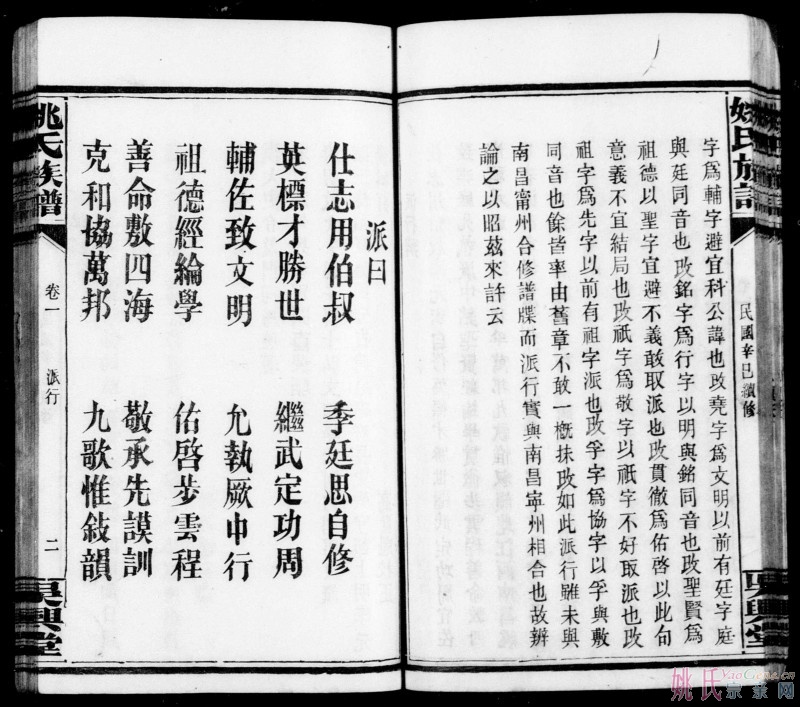 姚氏族譜
民國辛巳續修
吳興堂
字爲輔字避宜科公諱也改堯字爲文明以前有廷字庭
與廷同音也改銘字爲行字以明與銘同音也改聖賢爲
祖德以聖字宜避不義敢取派也改貫徹爲佑啓以此句
意義不宜結局也改祇字爲敬字以祇字不好取派也改
祖字爲先字以前有祖字派也改孚字爲協字以孚與敷
同音也餘皆率由舊章不敢一槪抹改如此派行雖未與
南昌甯州合修譜牒而派行實與南昌寧州相合也故辨
論之以昭茲來許云
派曰
仕志用伯叔 季廷思自修
英標才勝世 繼武定功周
輔佐致文明 允執厥中行
祖德經綸學 佑啓步雲程
善命敷四海 敬承先謨訓
克和協萬邦 九歌惟敍韻
姚氏族譜
卷一 派行
二
吳興堂
YaoGene.cn
姚氏宗亲网